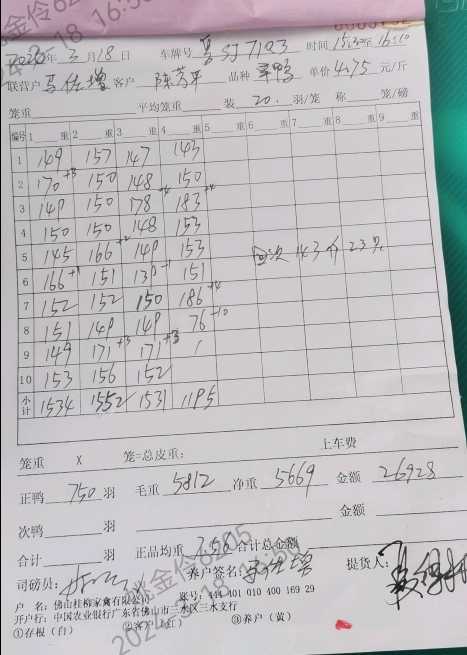 2026年 3月18日 车牌号 SJ7193 时间 15:30年 16:10
联营户 马伍增 客户 陈 品种 鸭 单价 4.75 元/斤
笼重 平均笼重 装 20. 羽/笼 称 笼/磅
编号 1 重 2 重 3 重 4 重 5 重 6 重 7 重 8 重 9 重
1 149 157 147 143
2 170+3 150 148 150
3 149 150 178+4 183+4
4 150 150 148 153
5 145 166+2 149 153 回次 143斤 23只
6 166+1 151 139-1 151
7 152 152 150 186+4
8 151 149 149 76-10
9 149 171+3 171+3 /
10 153 156 152
小计 1534 1552 1531 1195
笼重 X 笼=总皮重: 上车费
正鸭 750 羽 毛重 5812 净重 5669 金额 26928
次鸭 羽 金额
合计 羽 正品均重 7.56 合计总金额
司磅员: 养户签名: 马伍增 提货人:
户 名: 佛山桂柳家禽有限公司 账号: 444 101 010 400 169 29
开户行: 中国农业银行广东省佛山市三水区三水支行
①存根（白） ②客户（红） ③养户（黄）